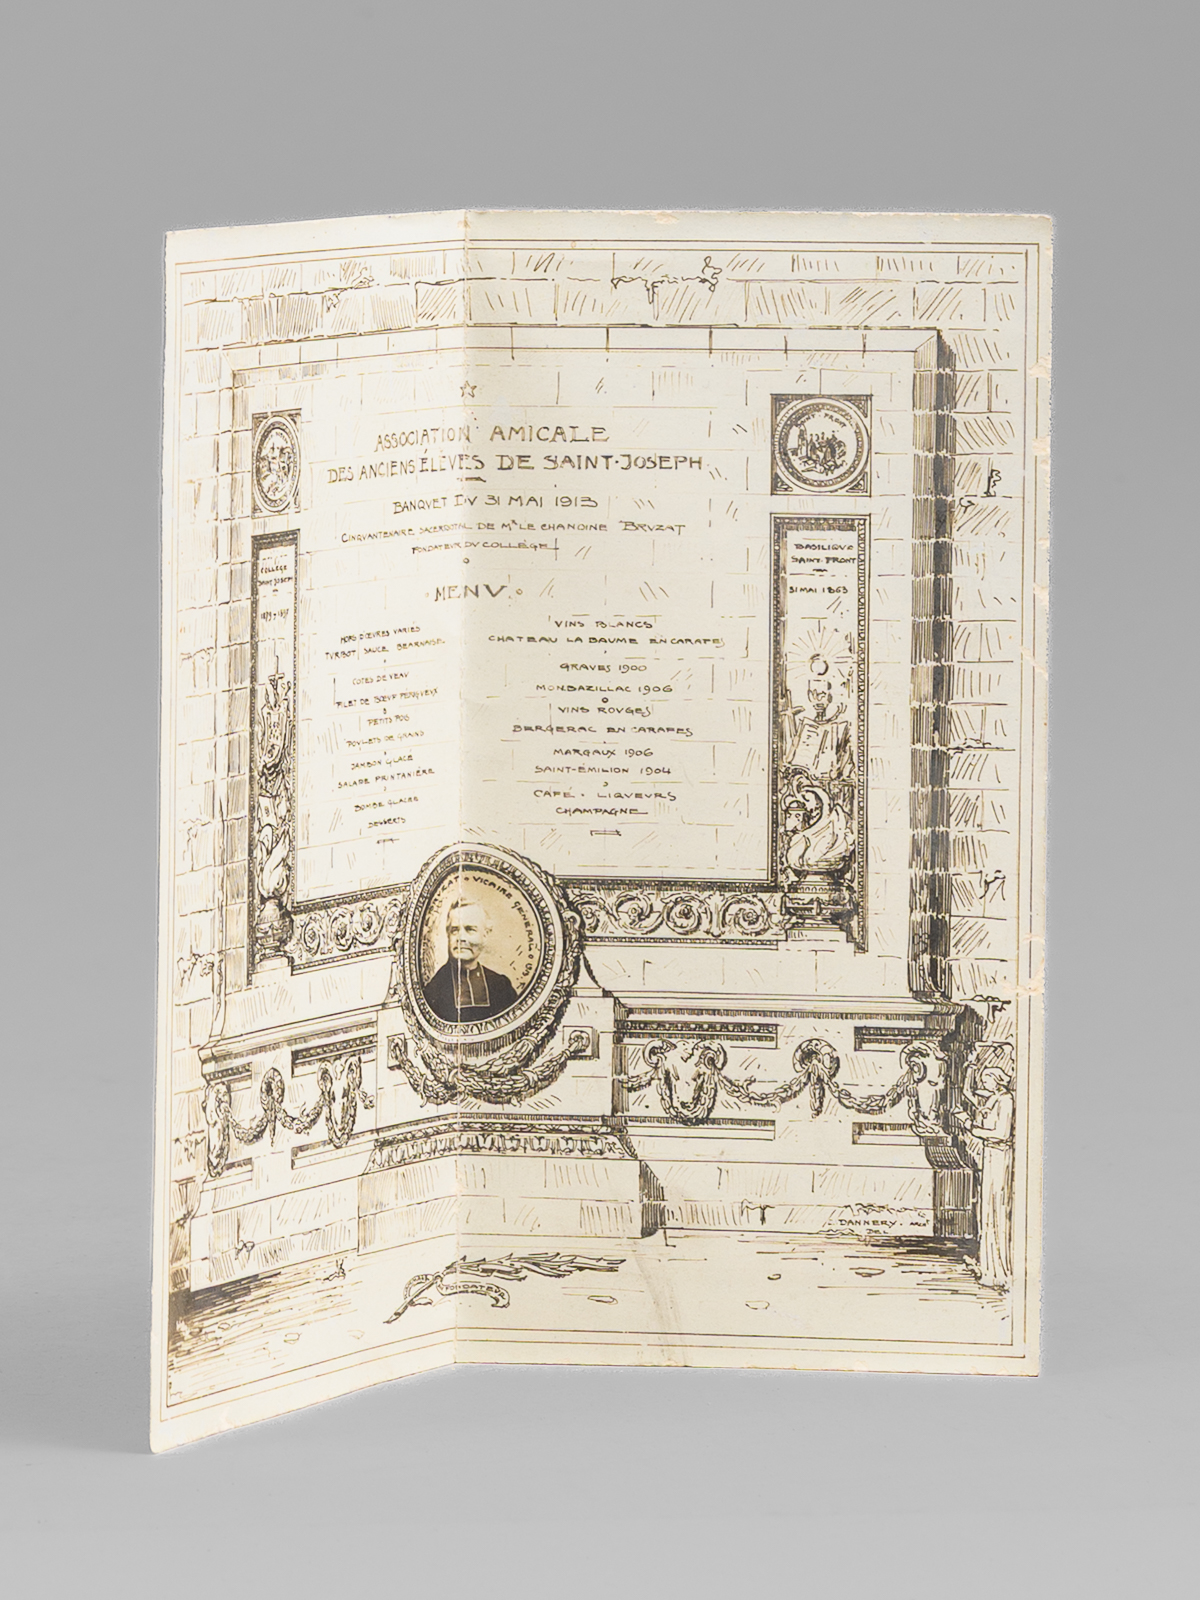 ASSOCIATION AMICALE
DES ANCIENS ÉLÈVES DE SAINT-JOSEPH
BANQVET DV 31 MAI 1913
CINQVANTENAIRE SACERDOTAL DE Mgr LE CHANOINE BRVZAT
FONDATEVR DV COLLÈGE
MENV
HORS D'ŒVRES VARIÉS
TVRBOT SAUCE BEARNAISE
COTES DE VEAV
FILET DE BŒUF PERIQVEVX
PETITS POIS
POVLETS DE GRAINS
JAMBON GLACÉ
SALADE PRINTANIÈRE
BOMBE GLACÉE
DESSERTS
VINS BLANCS
CHATEAU LA BAUME EN CARAFES
GRAVES 1900
MONBAZILLAC 1906
VINS ROVGES
BERGERAC EN CARAFES
MARGAUX 1906
SAINT-ÉMILION 1904
CAFÉ - LIQVEVRS
CHAMPAGNE
COLLÈGE
SAINT JOSEPH
SAINT FRONT
BASILIQVE
SAINT-FRONT
31 MAI 1863
VICAIRE GENERAL
FONDATEVR
DANNERY.
DEL